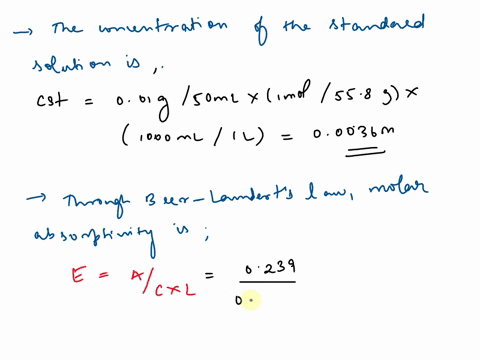 → The concentration of the standard
solution is,.
Cst = 0.01g /50mL x (1mol / 55.8 g) x
(1000mL / 1L) = 0.0036m
→ Through Beer-Lambert's law, molar
absorptivity is;
E = A/C×L = 0.239
0.